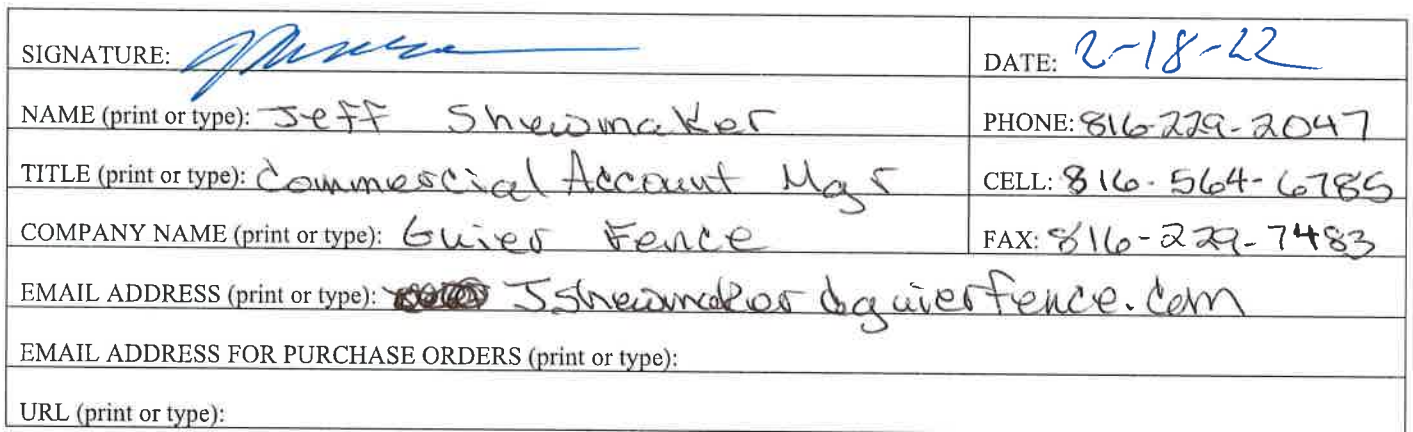 SIGNATURE: DATE: 2-18-22
NAME (print or type): Jeff Shewmaker PHONE: 816-229-2047
TITLE (print or type): Commercial Account Mgr CELL: 816-564-6785
COMPANY NAME (print or type): Guier Fence FAX: 816-229-7483
EMAIL ADDRESS (print or type): Jshewmaker@guierfence.com
EMAIL ADDRESS FOR PURCHASE ORDERS (print or type):
URL (print or type):